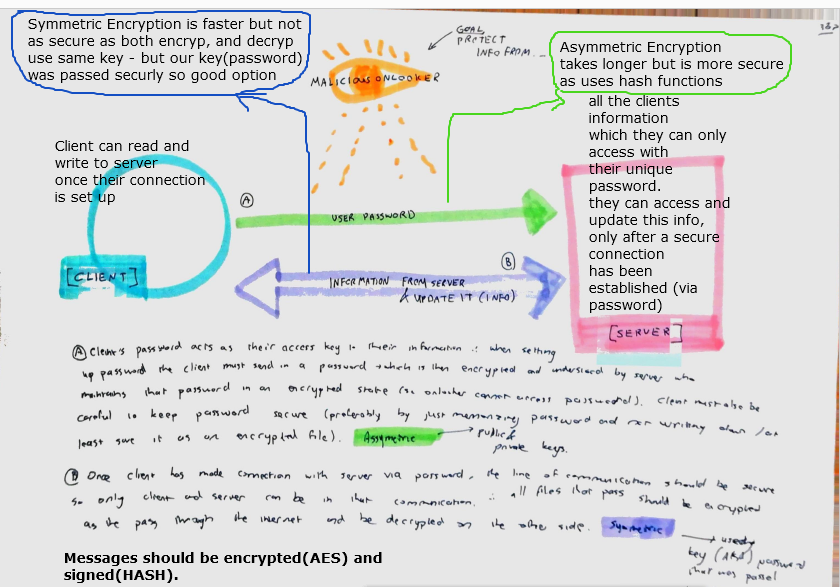 Symmetric Encryption is faster but not
as secure as both encryp, and decryp
use same key - but our key(password)
was passed securly so good option
GOAL
PROTECT
INFO FROM...
MALICIOUS ONLOOKER
Asymmetric Encryption
takes longer but is more secure
as uses hash functions
all the clients
information
which they can only
access with
their unique
password.
they can access and
update this info,
only after a secure
connection
has been
established (via
password)
Client can read and
write to server
once their connection
is set up
A
USER PASSWORD
B
INFORMATION FROM SERVER
& UPDATE IT (INFO)
[CLIENT]
[SERVER]
A Client's password acts as their access key to their information ∴ when setting
up password the client must send in a password which is then encrypted and understood by server who
maintains that password in an encrypted state (so onlooker cannot access password). Client must also be
careful to keep password secure (preferably by just memorizing password and not writing down / at
least save it as an encrypted file). Assymetric → public &
private keys.
B Once client has made connection with server via password, the line of communication should be secure
so only client and server can be in that communication. ∴ all files that pass should be encrypted
as the pass through the internet and be decrypted on the other side. Symmetric
→ used
key (AKA) password
that was passed
Messages should be encrypted(AES) and
signed(HASH).